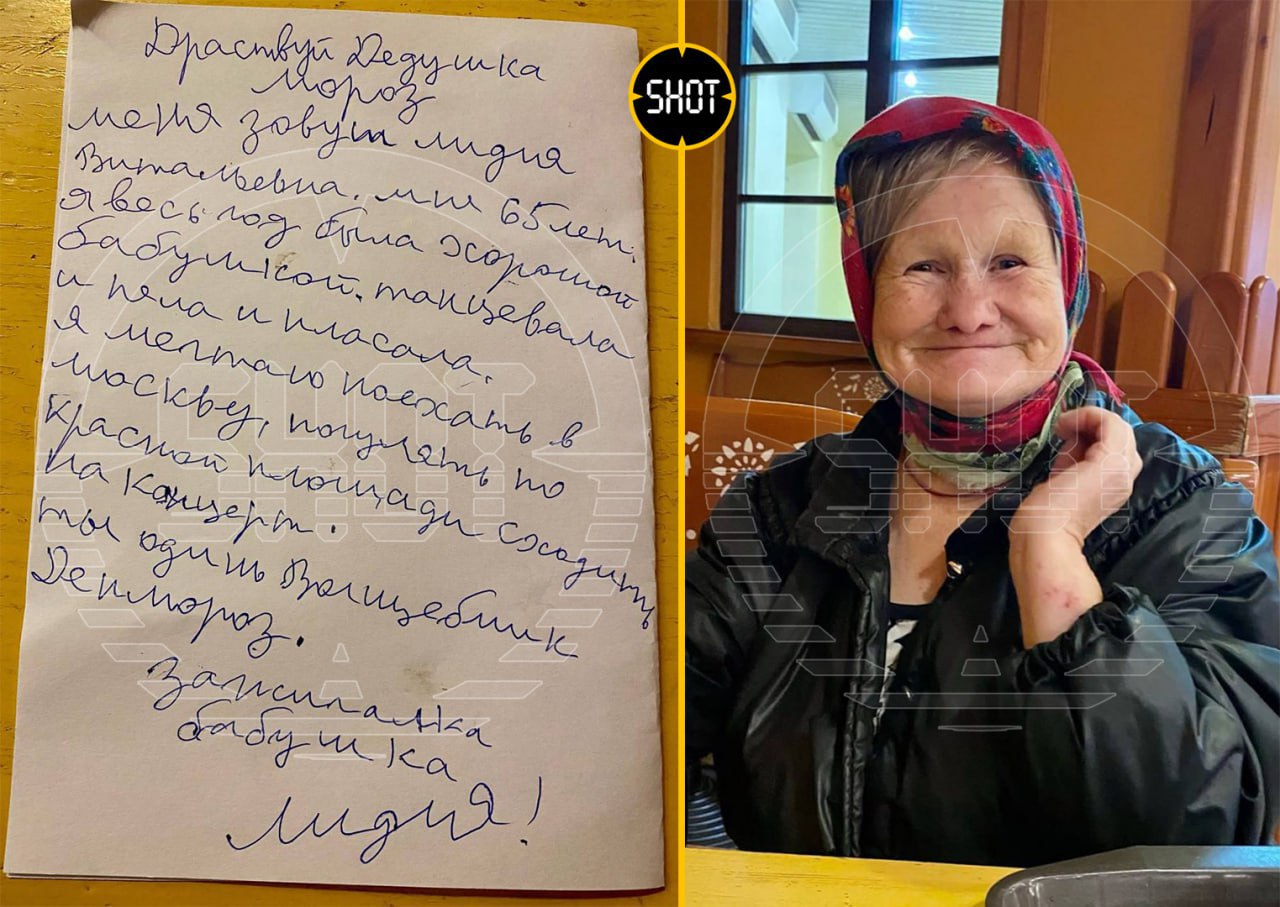 Драствуй Дедушка
Мороз
меня зовут лидия
Витальевна. мне 65 лет.
я весь год была хорошой
бабушкой. танцевала
и пела и пласала.
я мечтаю поехать в
москву, погулять по
красной площади сходить
на концерт.
ты одинь Вольщебник
Денмороз.
зажигалка
бабушка
лидия!
SHOT